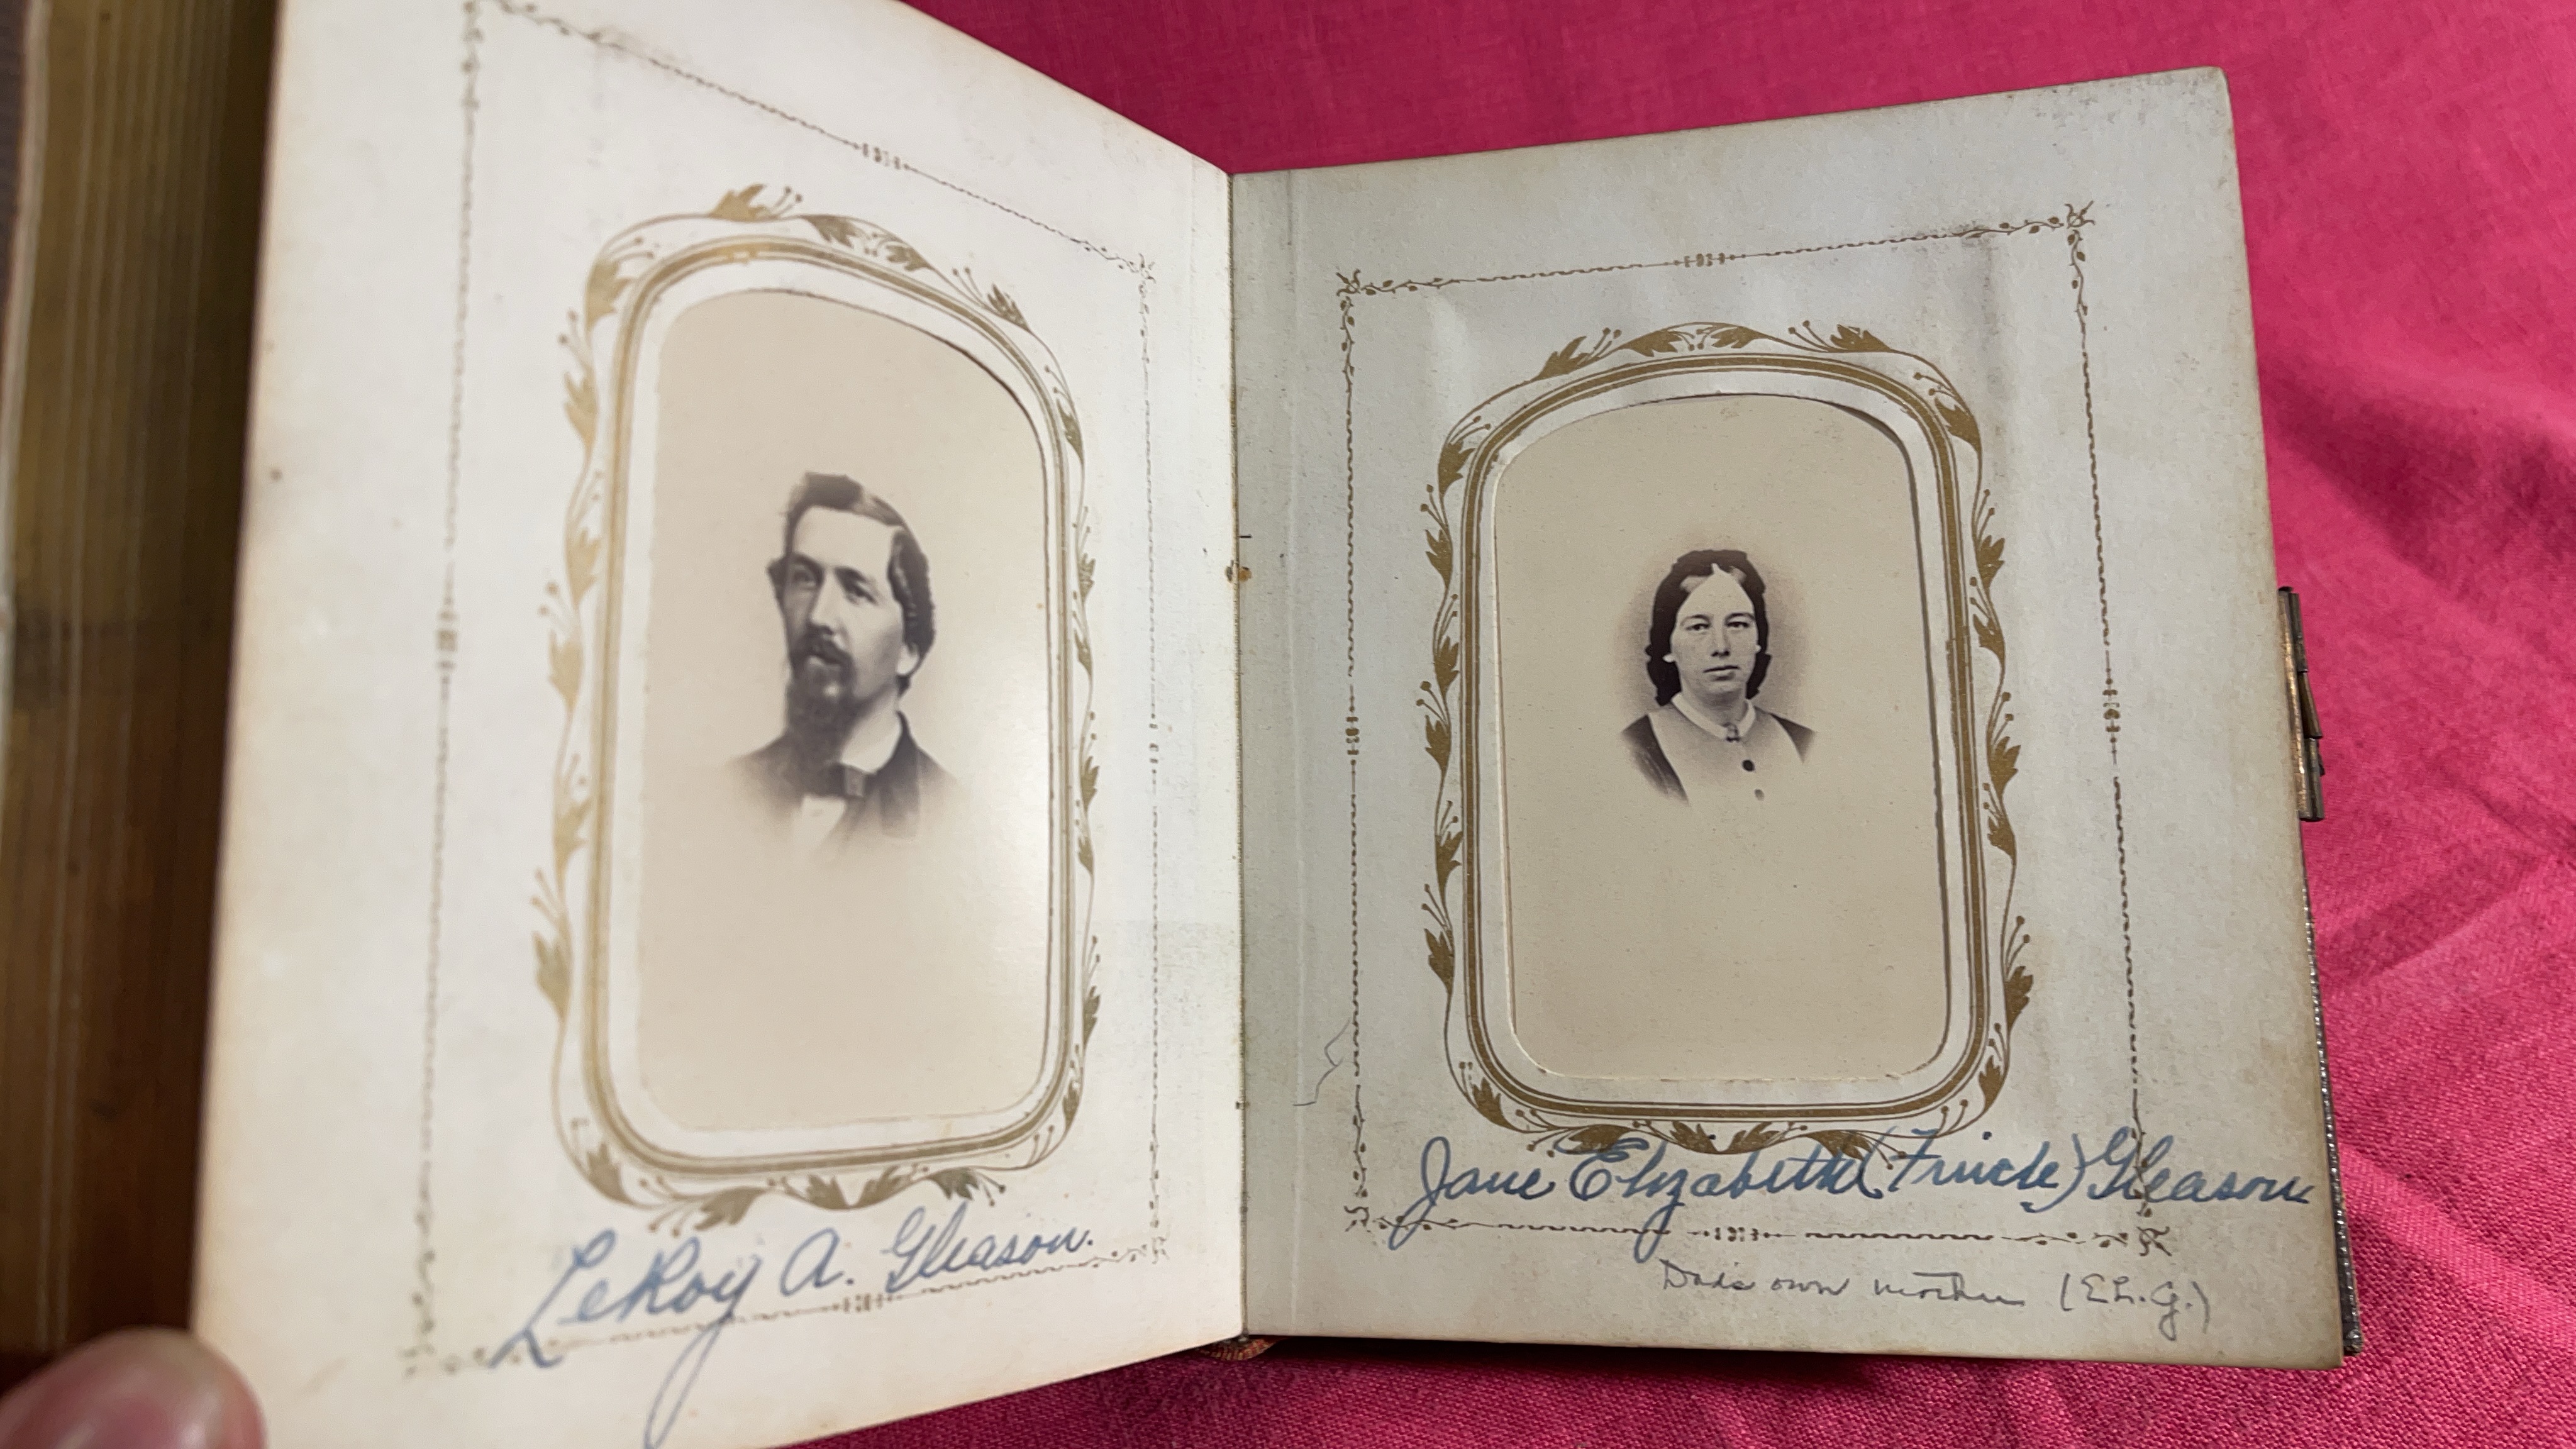 LeRoy A. Gleason.
Jane Elizabeth ( ) Gleason
Dad's own mother (E.L.G.)